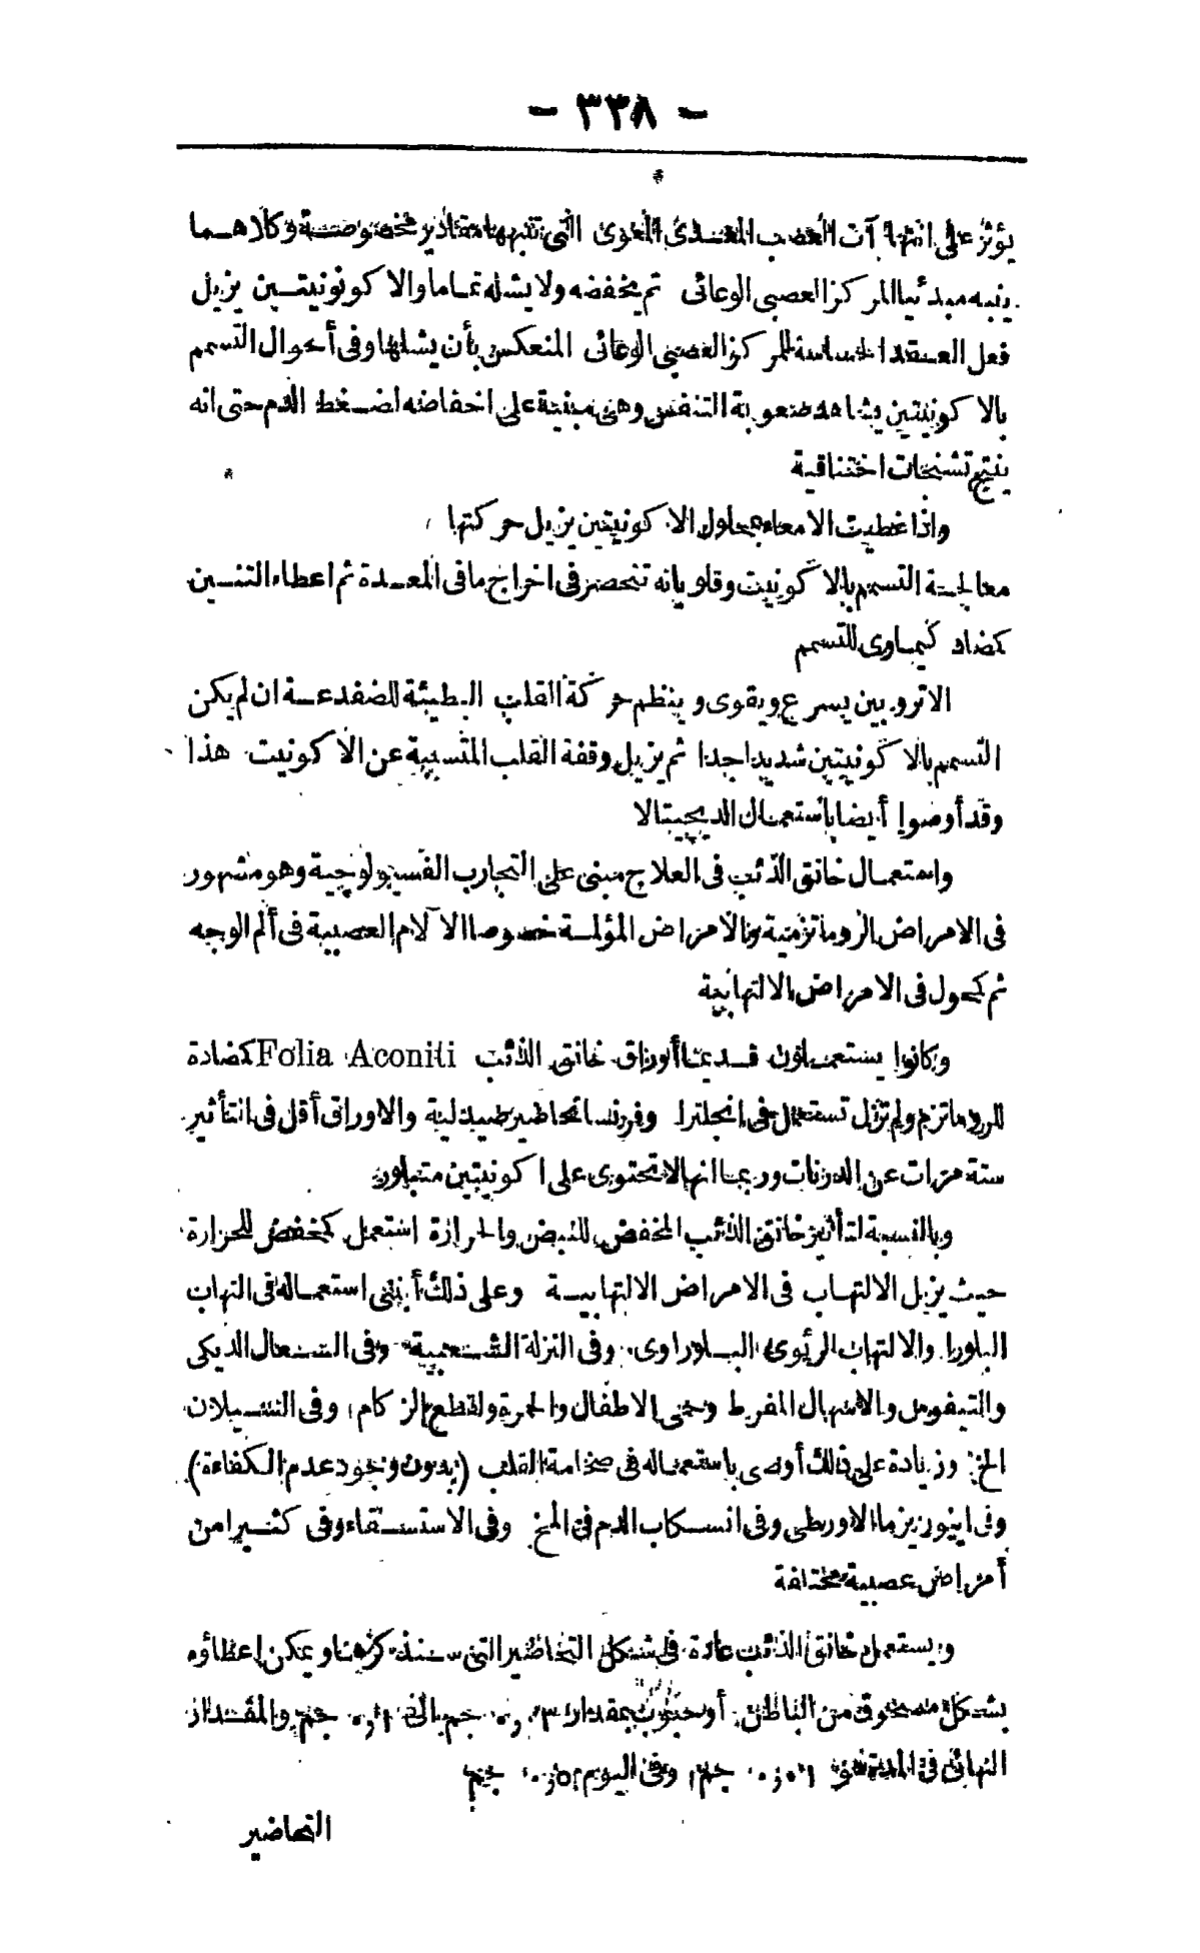 - ٣٣٨ -
يؤثر على انتهاآت العصب المعدى المعوى التى تنبهها مقادير مخصوصة وكلاهما
ينبه مبدئيا المركز العصبى الوعائى ثم يخفضه ولا يشله تماما والاكونونيتين يزيل
فعل العقد الحساسة للمركز العصبى الوعائى المنعكس بأن يشلها وفى أحوال التسمم
بالاكونيتين يشاهد صعوبة التنفس وهى مبنية على انخفاضه لضغط الدم حتى انه
ينتج تشنجات اختناقية
واذا غطيت الامعاء بمحلول الاكونيتين يزيل حركتها
معالجة التسمم بالاكونيت وقلوياته تنحصر فى اخراج ما فى المعدة ثم اعطاء التنين
كضاد كيماوى للتسمم
الاتروبين يسرع ويقوى وينظم حركة القلب البطيئة للضفدعة ان لم يكن
التسمم بالاكونيتين شديدا جدا ثم يزيل وقفة القلب المتسببة عن الاكونيت هذا
وقد أوصوا أيضا باستعمال الديجيتالا
واستعمال خانق الذئب فى العلاج مبنى على التجارب الفسيولوچية وهو مشهور
فى الامراض الروماتزمية والامراض المؤلمة خصوصا الآلام العصبية فى ألم الوجه
ثم كحول فى الامراض الالتهابية
وكانوا يستعملون قديما أوراق خانق الذئب Folia Aconiti كضادة
للروماتزم ولم تزل تستعمل فى انجلترا وفرنسا تحاضير صيدلية والاوراق أقل فى التأثير
ستة مرات عن الدرنات وربما انها لا تحتوى على اكونيتين متبلور
وبالنسبة لتأثير خانق الذئب المخفض للنبض والحرارة استعمل كمخفض للحرارة
حيث يزيل الالتهاب فى الامراض الالتهابية وعلى ذلك أبنى استعماله فى التهاب
البلورا والالتهاب الرئوى البلوراوى وفى النزلة الشعبية وفى السعال الديكى
والتيفوس والاسهال المفرط وحمى الاطفال والحمرة ولقطع الزكام وفى السيلان
الخ وزيادة على ذلك أوصى باستعماله فى ضخامة القلب (بدون وجود عدم الكفاءة)
وفى اينوريزما الاورطى وفى انسكاب الدم فى المخ وفى الاستسقاء وفى كثير من
أمراض عصبية مختلفة
ويستعمل خانق الذئب عادة فى شكل التحاضير التى سنذكرها ويمكن اعطاؤه
بشكل مسحوق من الباطن أو حبوب بمقدار ٠٫٠٣ جم الى ٠٫١ جم والمقدار
النهائى فى جم وفى اليوم جم
التحاضير